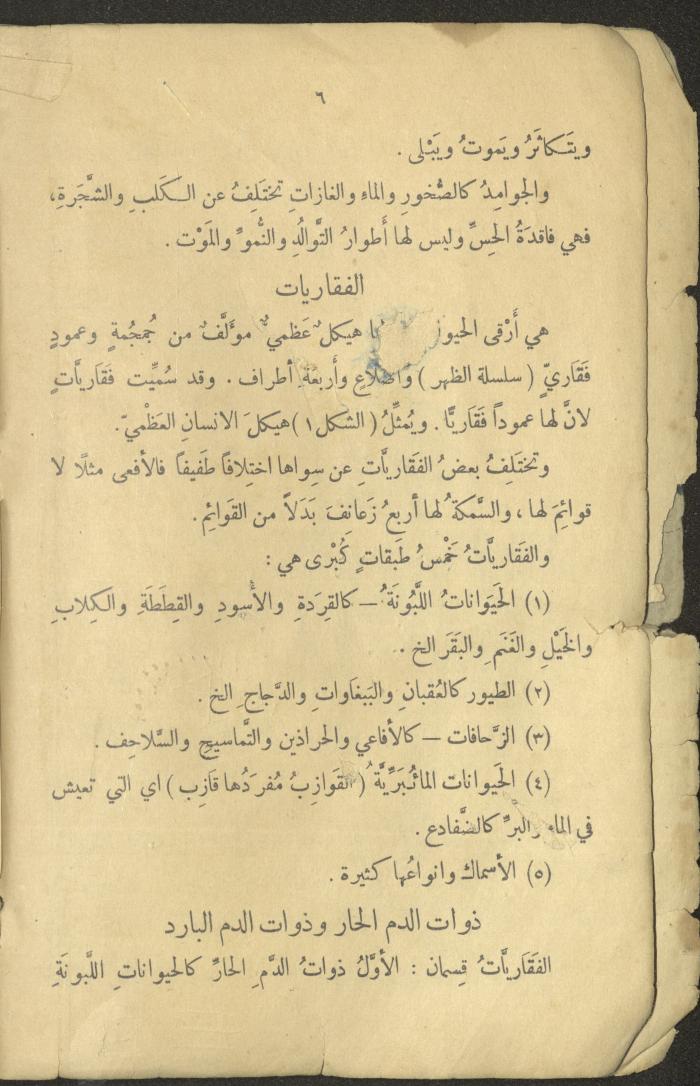 ٦
ويَتَكاثَرُ ويَموتُ ويَبْلى .
والجوامِدُ كالصُّخورِ والماءِ والغازاتِ تختَلِفُ عن الكَلبِ والشَّجَرَةِ،
فهي فاقدَةُ الحِسِّ وليس لها أَطوارُ التَّوالُدِ والنُّموِّ والمَوْت .
الفقاريات
هي أَرْقى هيكلٌ عَظميٌّ مؤَلَّفٌ من جُمجُمةٍ وعمودٍ
فَقَاريٍّ ( سلسلة الظهر ) وأضلاعٍ وأَربعَةِ أطراف . وقد سُمِّيت فقَاريَّاتٍ
لانَّ لها عموداً فَقَاريًّا . ويُمثِّلُ ( الشكل ١ ) هيكلَ الانسانِ العَظْميّ .
وتختَلِفُ بعضُ الفقَاريَّاتِ عن سِواها اختِلافاً طَفيفاً فالأفعى مثلًا لا
قوائِمَ لها ، والسَّمكةُ لها أربعُ زَعانِفَ بَدَلاً من القَوائِم .
والفَقَاريَّاتُ خَمْسُ طَبقاتٍ كُبْرى هي :
(١) الحَيَواناتُ اللَّبُونَةُ – كالقِرَدةِ والأُسودِ والقِطَطَةِ والكِلابِ
والخَيْلِ والغَنَمِ والبَقَرِ الخ ..
(٢) الطيور كالعُقبانِ والبَبغَاواتِ والدَّجاجِ الخ .
(٣) الزحَّافات – كالأفاعي والحراذين والتَّماسيحِ والسَّلاحِف .
(٤) الحَيوانات المائبَرِّيَّةُ ( القَوازِبُ مُفرَدُها قَازِب ) اي التي تعيش
في الماء والبرِّ كالضَّفادع .
(٥) الأسماك وانواعُها كثيرة .
ذوات الدم الحار وذوات الدم البارد
الفَقَاريَّاتُ قِسمان : الأوَّلُ ذواتُ الدَّمِ الحارِّ كالحيواناتِ اللَّبونَةِ